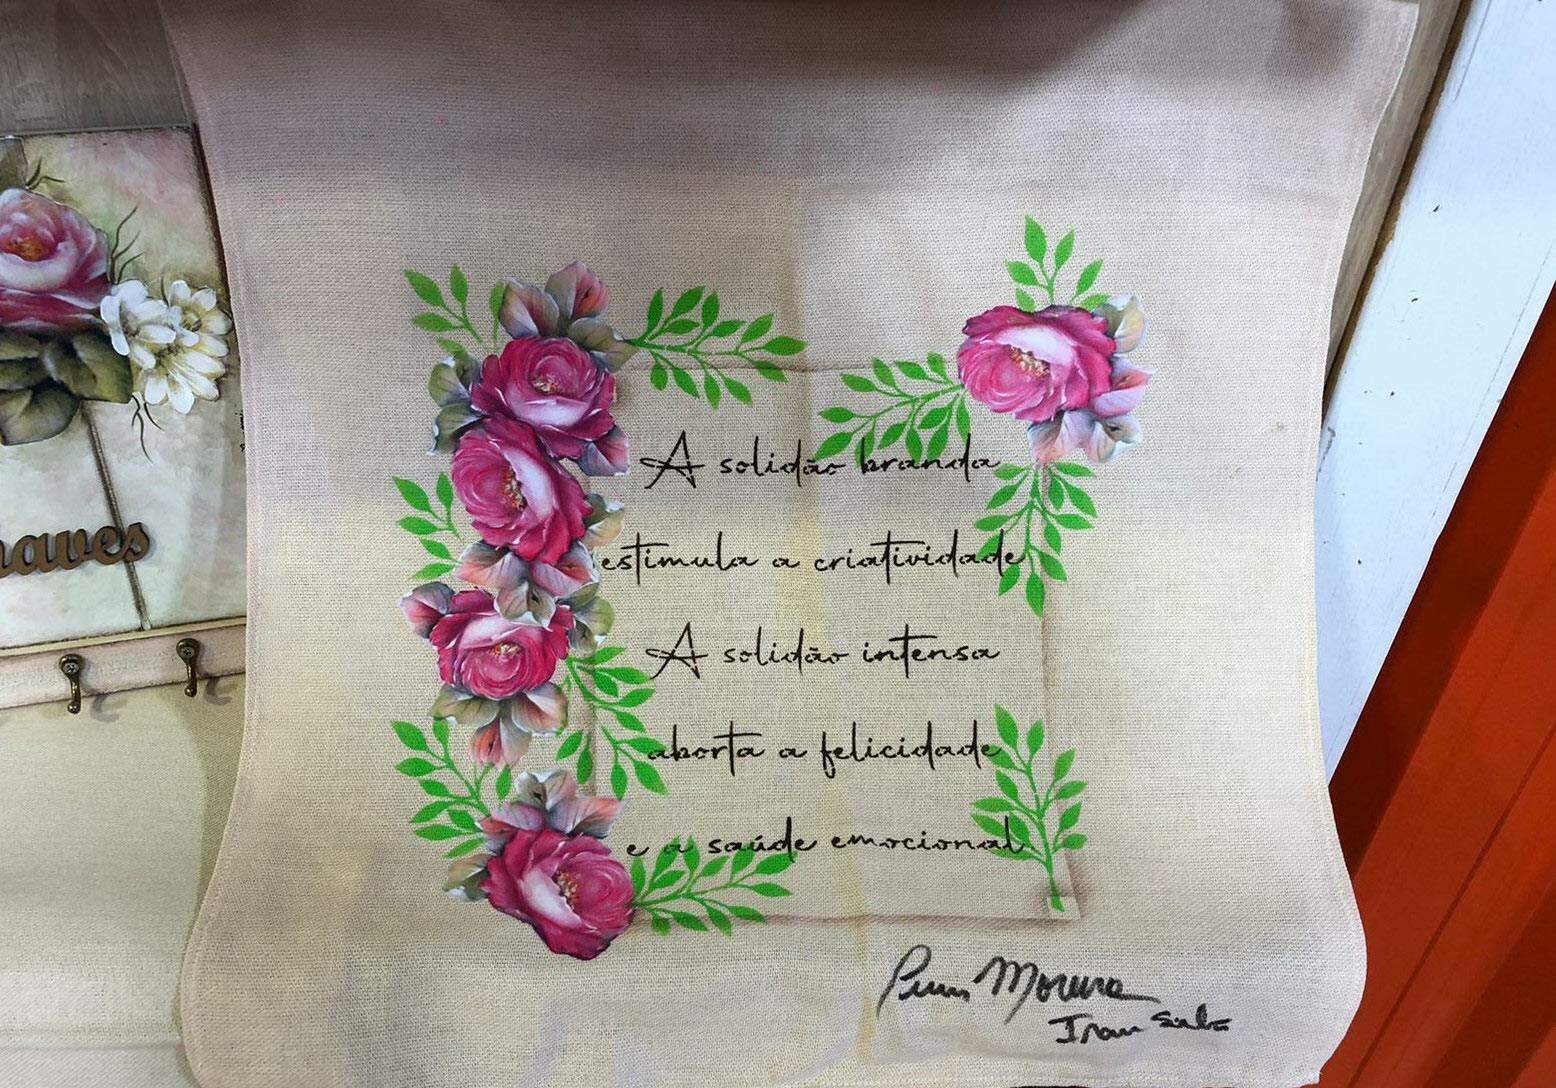 A solidão branda
estimula a criatividade
A solidão intensa
aborta a felicidade
e a saúde emocional
haves
Moreira
Iran